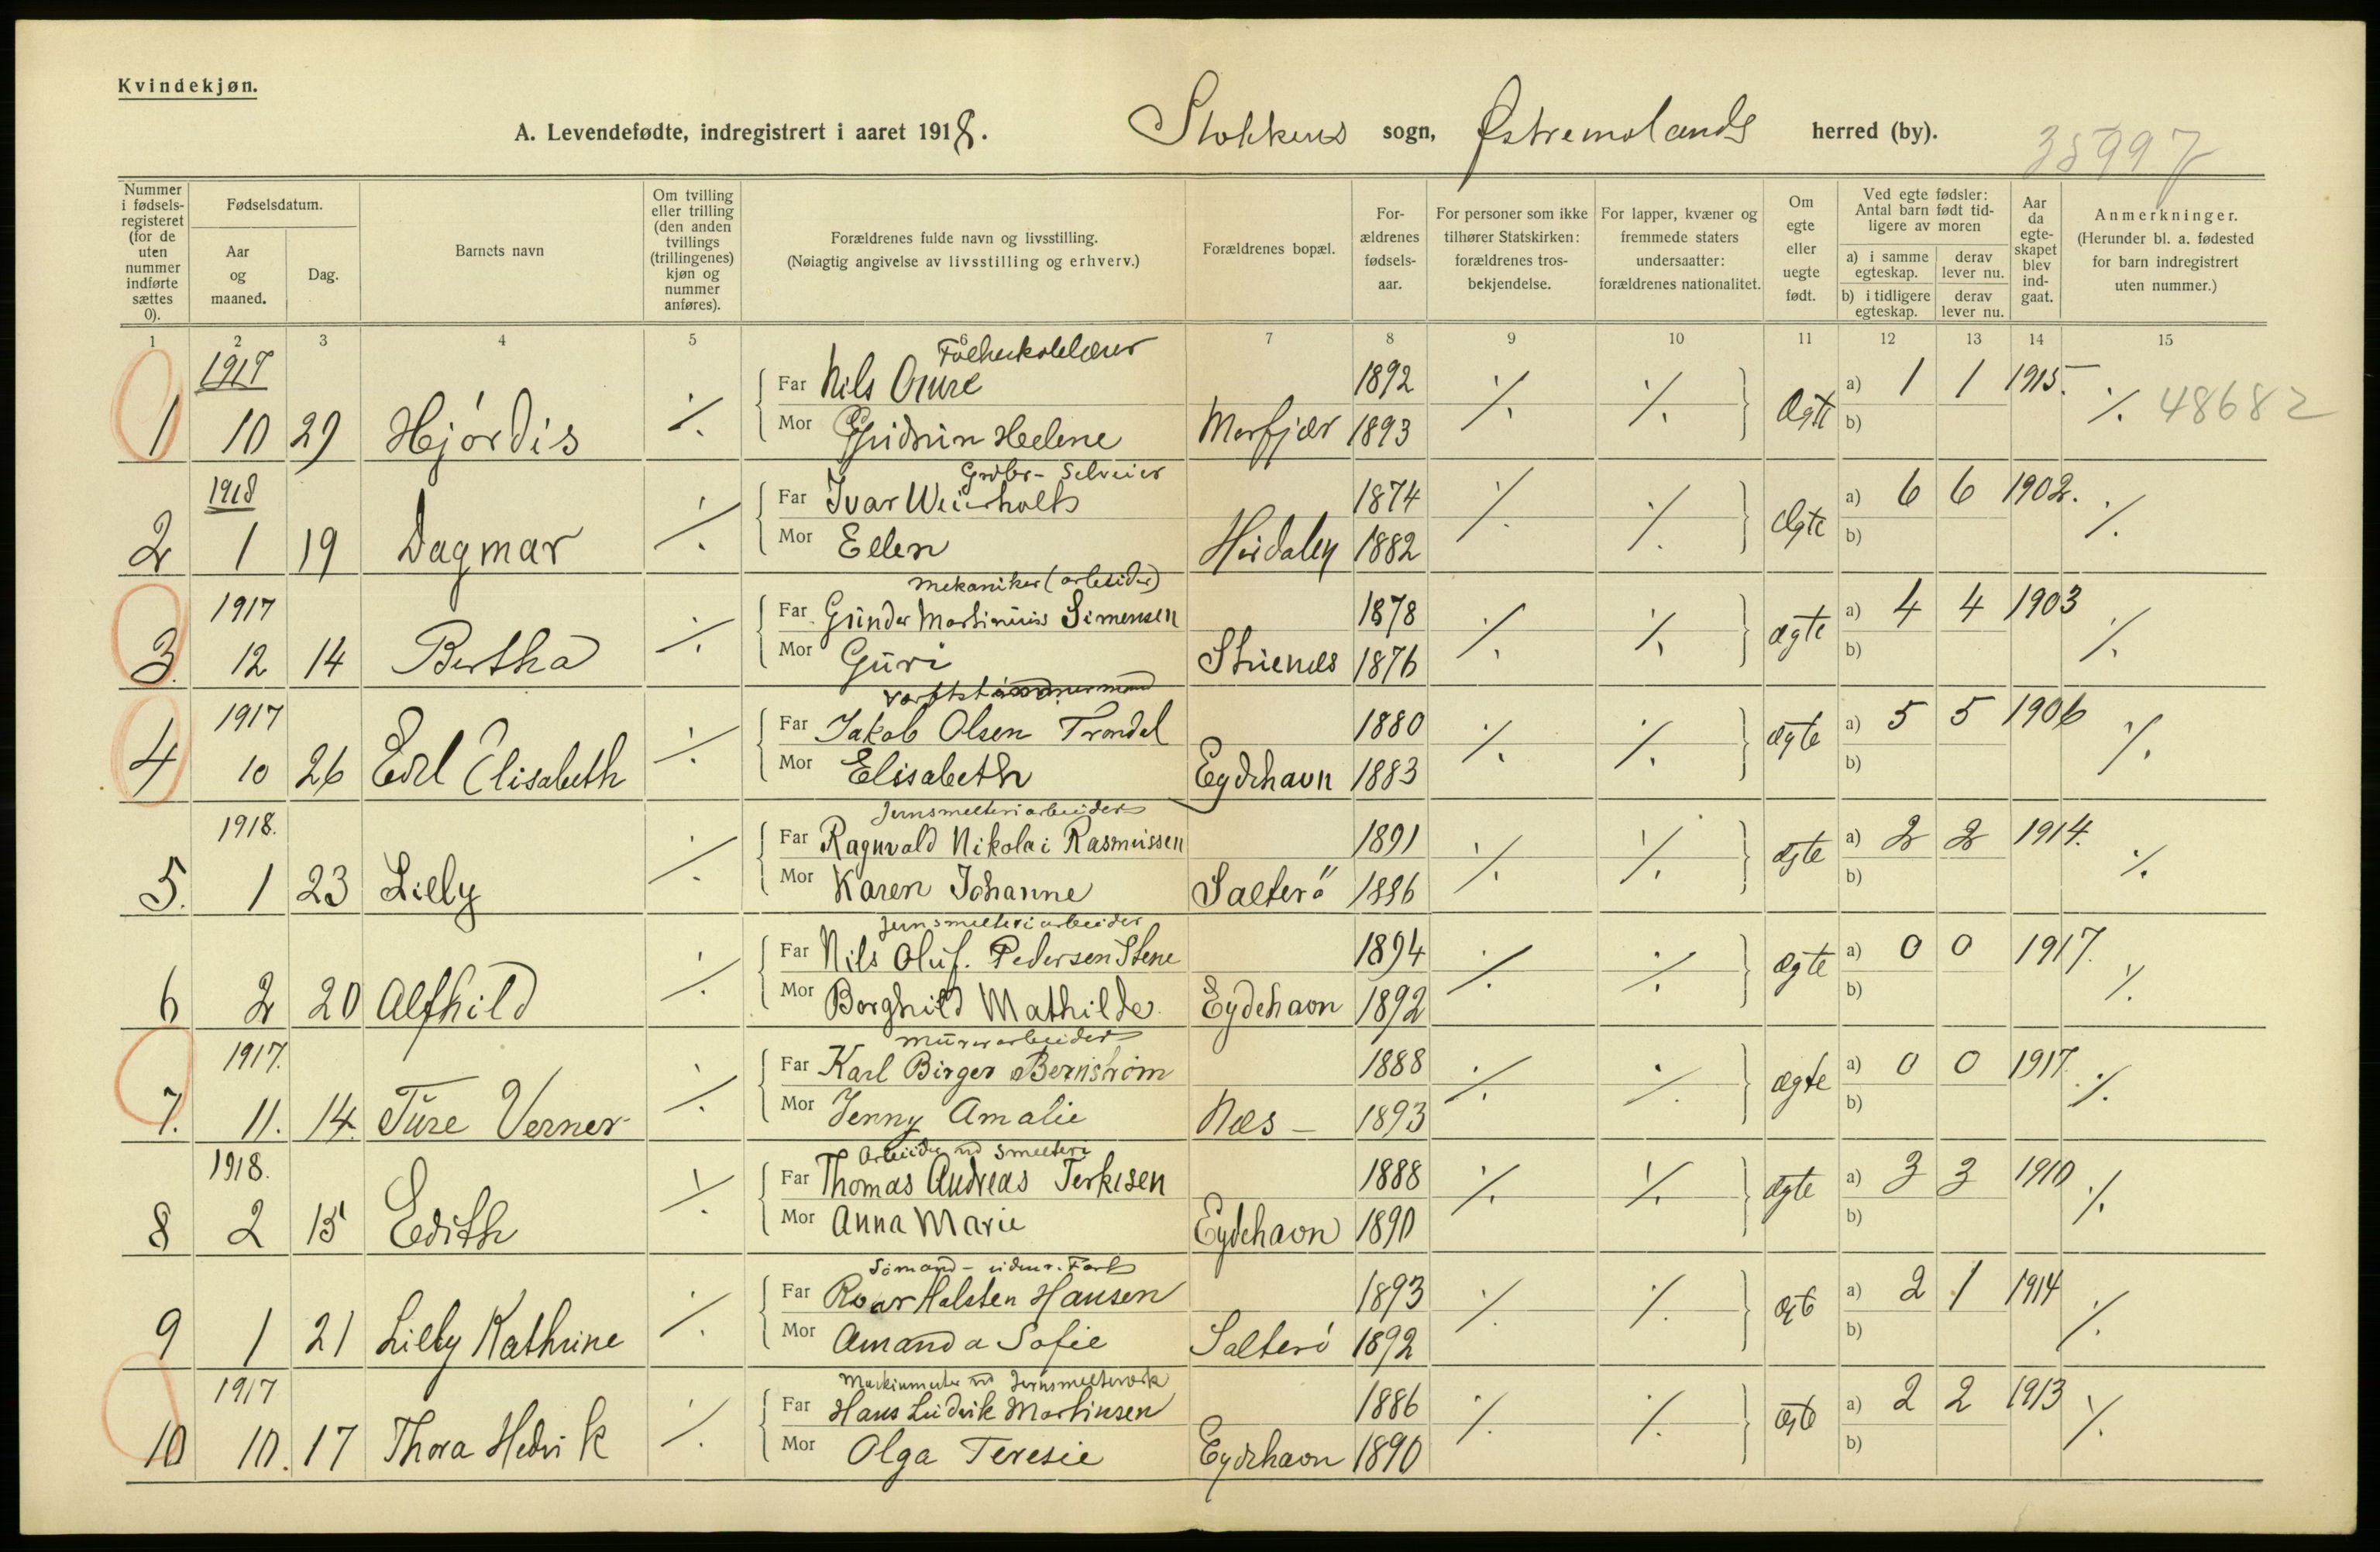 Kvindekjøn.
A. Levendefødte, indregistrert i aaret 1918. Stokkens sogn, Østremolands herred (by). 35997
Nummer i fødsels-registeret (for de uten nummer indførte sættes 0). Fødselsdatum. Aar og maaned. Dag. Barnets navn Om tvilling eller trilling (den anden tvillings (trillingenes) kjøn og nummer anføres). Forældrenes fulde navn og livsstilling. (Nøiagtig angivelse av livsstilling og erhverv.) Forældrenes bopæl. For-ældrenes fødsels-aar. For personer som ikke tilhører Statskirken: forældrenes tros-bekjendelse. For lapper, kvæner og fremmede staters undersaatter: forældrenes nationalitet. Om egte eller uegte født. Ved egte fødsler: Antal barn født tid-ligere av moren a) i samme egteskap. derav lever nu. b) i tidligere egteskap. derav lever nu. Aar da egte-skapet blev ind-gaat. Anmerkninger. (Herunder bl. a. fødested for barn indregistrert uten nummer.)
1 2 3 4 5 6 7 8 9 10 11 12 13 14 15
1917 Folkeskolelærer
Far Nils 1892 ./. ./. a) 1 1 1915.
1 10 29 Hjördis ./. Mor Gudrun Helene Morfjær 1893 Ægte b) ./. 48682
1918 Grdbr- Selveier
Far Ivar Weierholt 1874 ./. ./. a) 6 6 1902. ./.
2 1 19 Dagmar ./. Mor Ellen 1882 Ægte b)
1917 Mekaniker (arbeider)
Far Gunder Martinius Simensen 1878 ./. ./. ægte a) 4 4 1903 ./.
3. 12 14 Bertha ./. Mor Guri 1876 b)
1917
Far Jakob Olsen Trondal 1880 ./. ./. ægte a) 5 5 1906 ./.
4 10 26 Edel Elisabeth ./. Mor Elisabeth Eydehavn 1883 b)
1918. Jernsmelteriarbeider
Far Ragnvald Nikolai Rasmussen 1891 ./. ./. ægte a) 2 2 1914. ./.
5. 1 23 Lilly ./. Mor Karen Johanne Salterö 1886 b)
Jernsmelteriarbeider
Far Nils Oluf. Pedersen Stene 1894 ./. ./. ægte a) 0 0 1917. ./.
6 2 20 Alfhild ./. Mor Borghild Mathilde. Eydehavn 1892 b)
1917. Murerarbeider
Far Karl Birger Bernström 1888 ./. ./. ægte a) 0 0 1917. ./.
7. 11. 14. Ture Verner ./. Mor Jenny Amalie Næs - 1893 b)
1918. Arbeider ved smelteri
Far Thomas Andreas Terkisen 1888 ./. ./. ægte a) 3 3 1910 ./.
8 2 15 Edith ./. Mor Anna Marie Eydehavn 1890 b)
Sömand - udenr. Fart
Far Roar Halsten Hansen 1893 ./. ./. ægte a) 2 1 1914 ./.
9 1 21 Lilly Kathrine ./. Mor Amanda Sofie Salterö 1892 b)
1917 Maskinmester ved Jernsmelteverk
Far Hans Ludvik Martinsen 1886 ./. ./. ægte a) 2 2 1913 ./.
10 10. 17 Thora Hedvik ./. Mor Olga Teresie Eydehavn 1890 b)